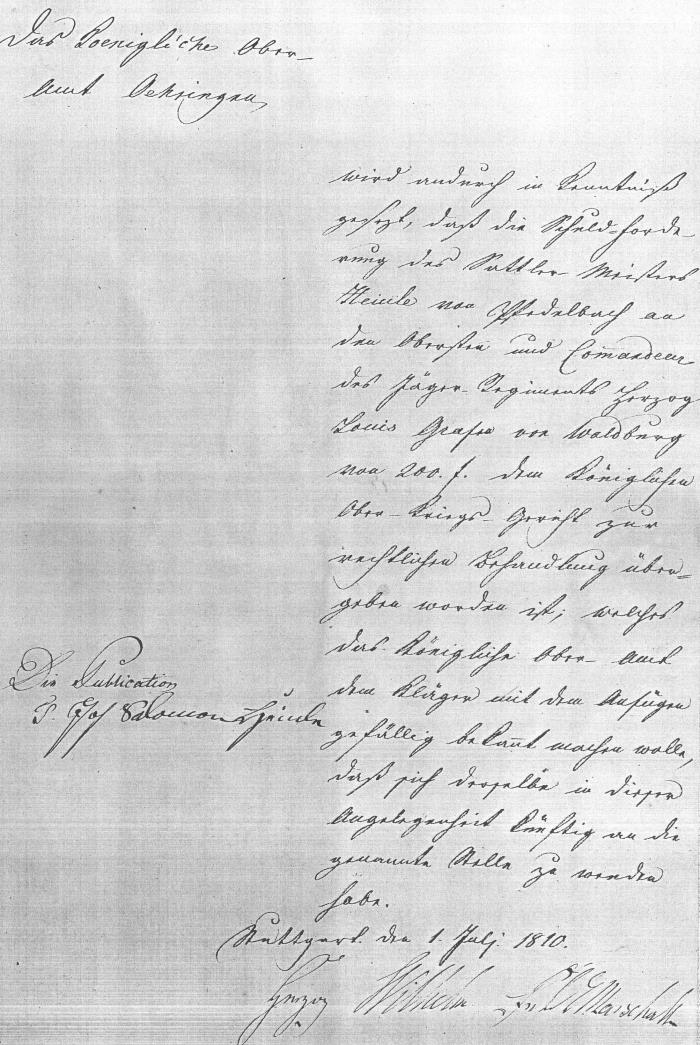 Das Koenigliche Ober-
Amt Oehringen,
wird andurch in Kenntniß
gesezt, daß die Schuld-Forde-
rung des Sattler-Meisters
Heinle von Pfedelbach an
den Obersten und Commandeur
des Jäger-Regiments Herzog
Louis Grafen von Waldburg
von 200. f. dem Königlichen
Ober-Kriegs-Gericht zur
rechtlichen Behandlung über=
geben worden ist; welches
das Königliche Ober-Amt
dem Kläger mit dem Anfügen
gefällig bekannt machen wolle,
daß sich derselbe in dieser
Angelegenheit künftig an die
genannte Stelle zu wenden
habe.
Stuttgart. den 1. Julj. 1810.
Die Publication
Salomon Heinle
Herzog Wilhelm